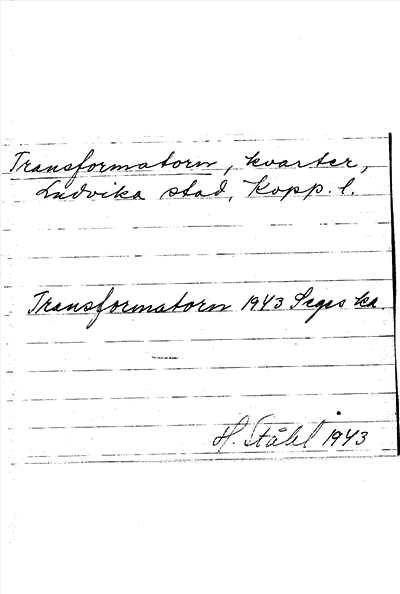 Transformatorn, kvarter,
Ludvika stad, Kopp. l.
Transformatorn 1943 Seges ka.
H. Ståhl 1943